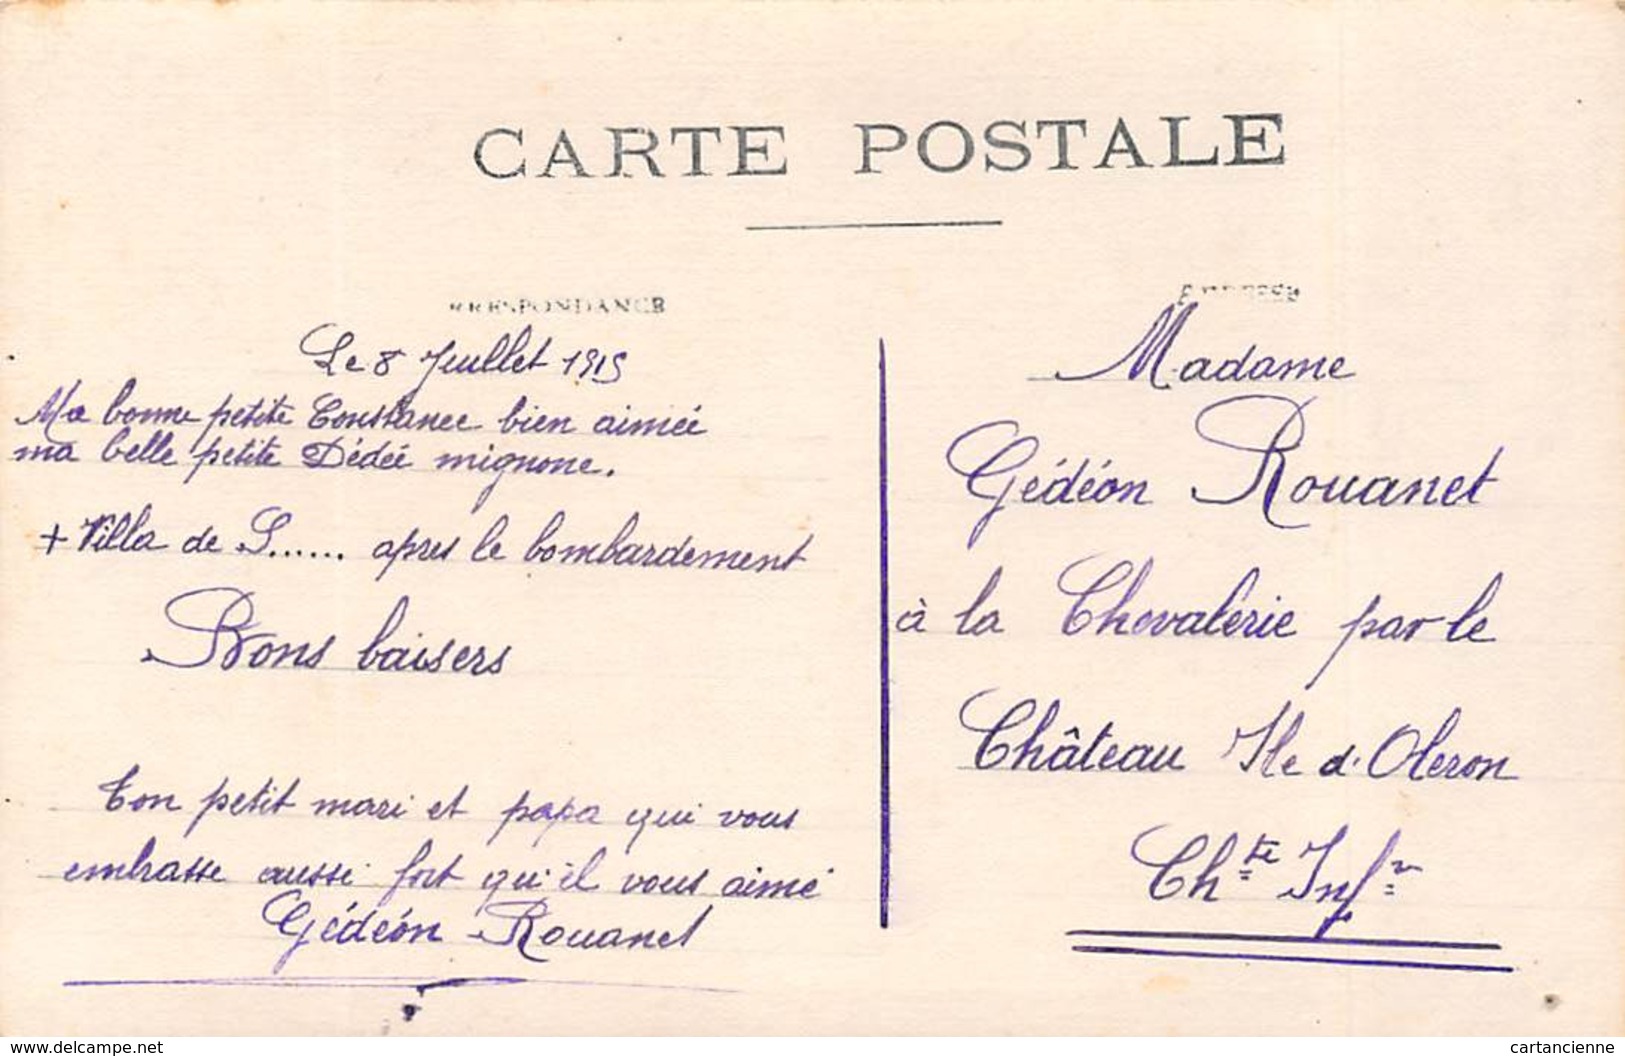 CARTE POSTALE
RRESPONDANCE
Le 8 Juillet 1915
Ma bonne petite Constance bien aimée
ma belle petite Dédée mignone.
+ Villa de S...... apres le bombardement
Bons baisers
Ton petit mari et papa qui vous
embrasse aussi fort qu'il vous aime
Gédéon Rouanet
ADRESSE
Madame
Gédéon Rouanet
à la Chevalerie par le
Château Ile d'Oleron
Chte Infre
www.delcampe.net
cartancienne